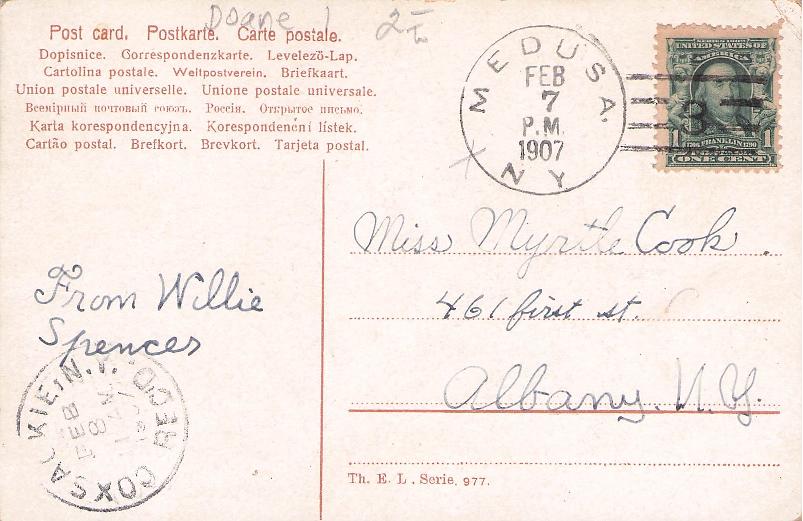 Doane 1 2
Post card. Postkarte. Carte postale.
Dopisnice. Correspondenzkarte. Levelező-Lap.
Cartolina postale. Weltpostverein. Briefkaart.
Union postale universelle. Unione postale universale.
Всемірный почтовый союзъ. Россія. Открытое письмо.
Karta korespondencyjna. Korespondenční lístek.
Cartão postal. Brefkort. Brevkort. Tarjeta postal.
MEDUSA,
FEB
7
P.M.
1907
N Y
3
SERIES 1902
UNITED STATES OF
AMERICA
FRANKLIN
1 1
ONE CENT
Miss Myrtle Cook
461 first st.
Albany, N.Y.
From Willie
Spencer
COXSACKIE, N.Y. REC'D.
FEB
8
Th. E. L. Serie. 977.